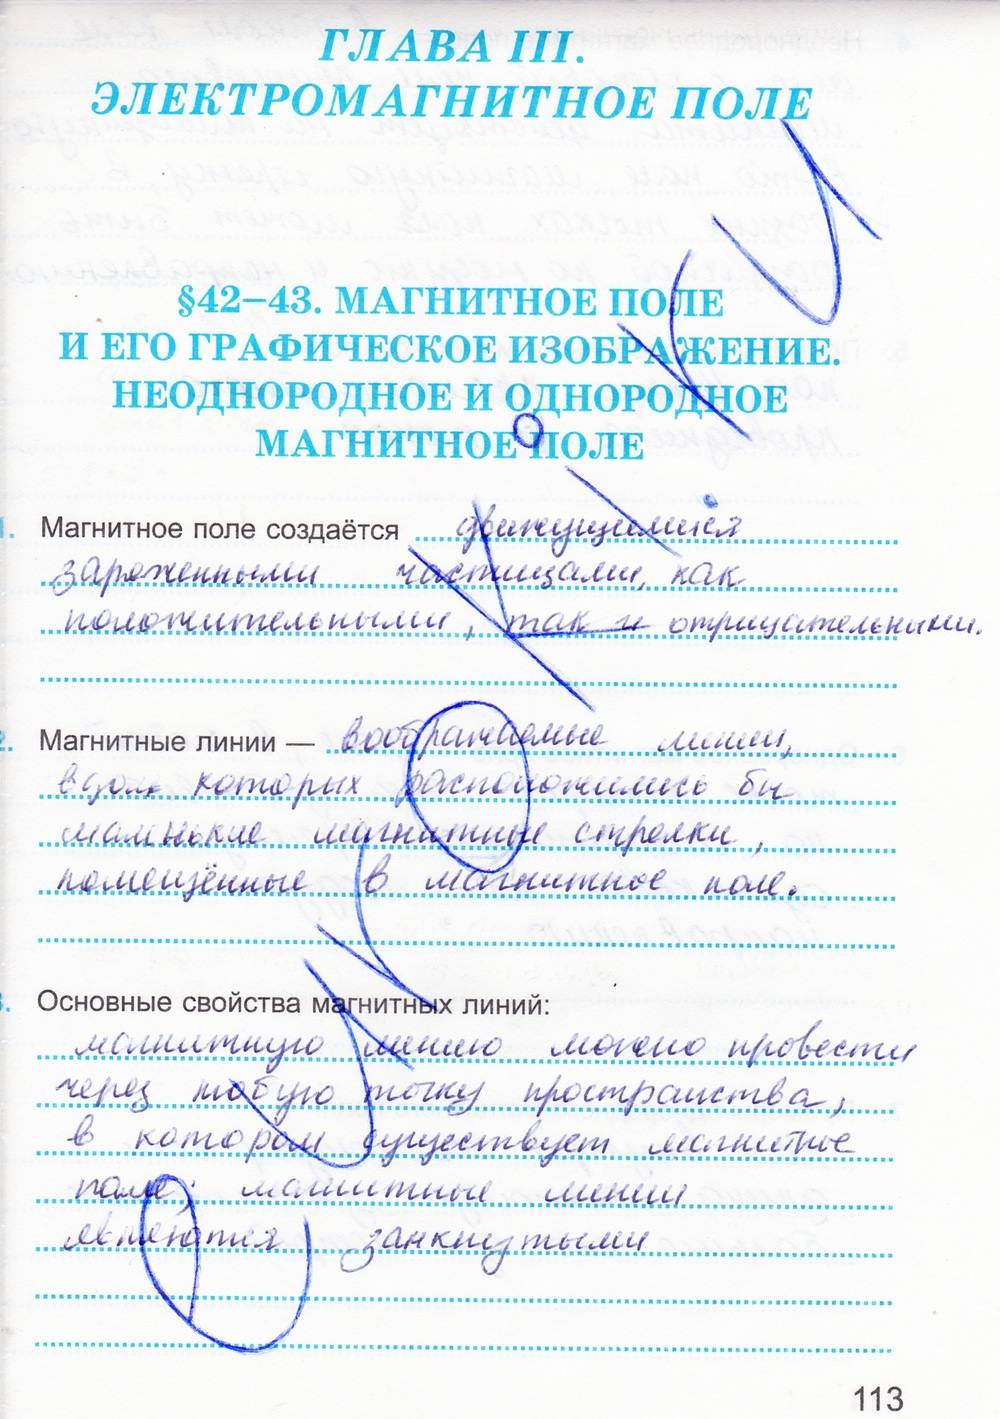 ГЛАВА III.
ЭЛЕКТРОМАГНИТНОЕ ПОЛЕ
§42–43. МАГНИТНОЕ ПОЛЕ
И ЕГО ГРАФИЧЕСКОЕ ИЗОБРАЖЕНИЕ.
НЕОДНОРОДНОЕ И ОДНОРОДНОЕ
МАГНИТНОЕ ПОЛЕ
1. Магнитное поле создаётся движущимися
заряженными частицами, как
положительными, так и отрицательными.
2. Магнитные линии — воображаемые линии,
вдоль которых расположились бы
маленькие магнитные стрелки,
помещённые в магнитное поле.
3. Основные свойства магнитных линий:
магнитную линию можно провести
через любую точку пространства,
в котором существует магнитное
поле; магнитные линии
являются замкнутыми
113